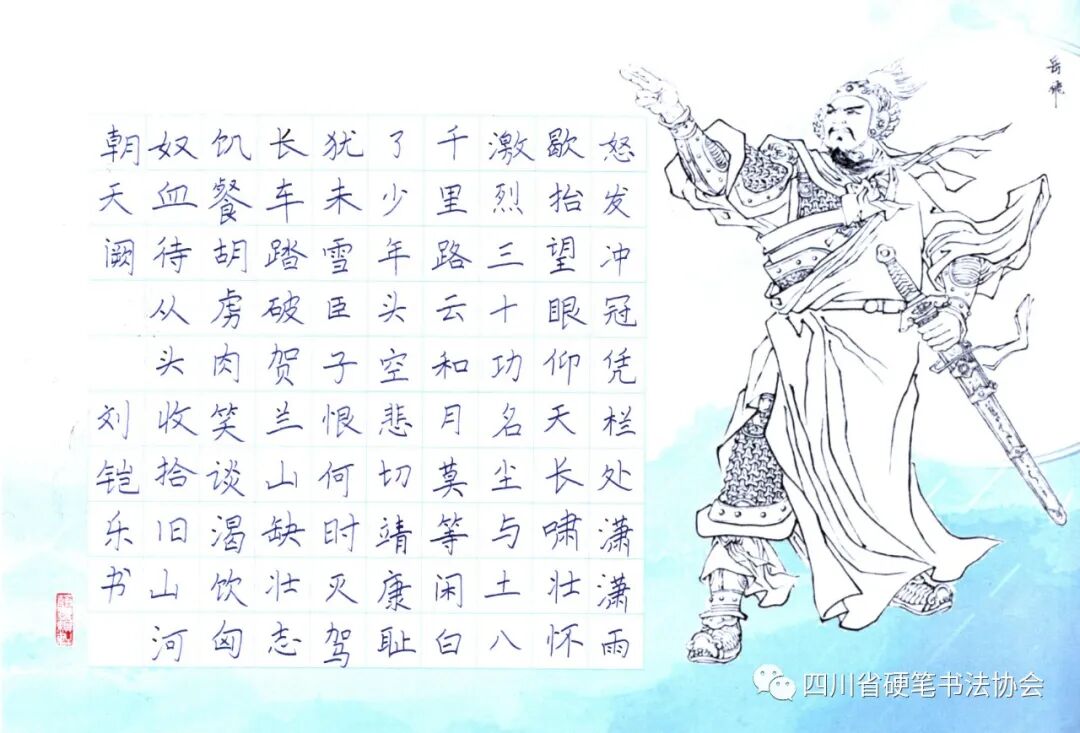 岳飛
怒发冲冠凭栏处潇潇雨
歇抬望眼仰天长啸壮怀
激烈三十功名尘与土八
千里路云和月莫等闲白
了少年头空悲切靖康耻
犹未雪臣子恨何时灭驾
长车踏破贺兰山缺壮志
饥餐胡虏肉笑谈渴饮匈
奴血待从头收拾旧山河
朝天阙 刘铠乐书
四川省硬笔书法协会